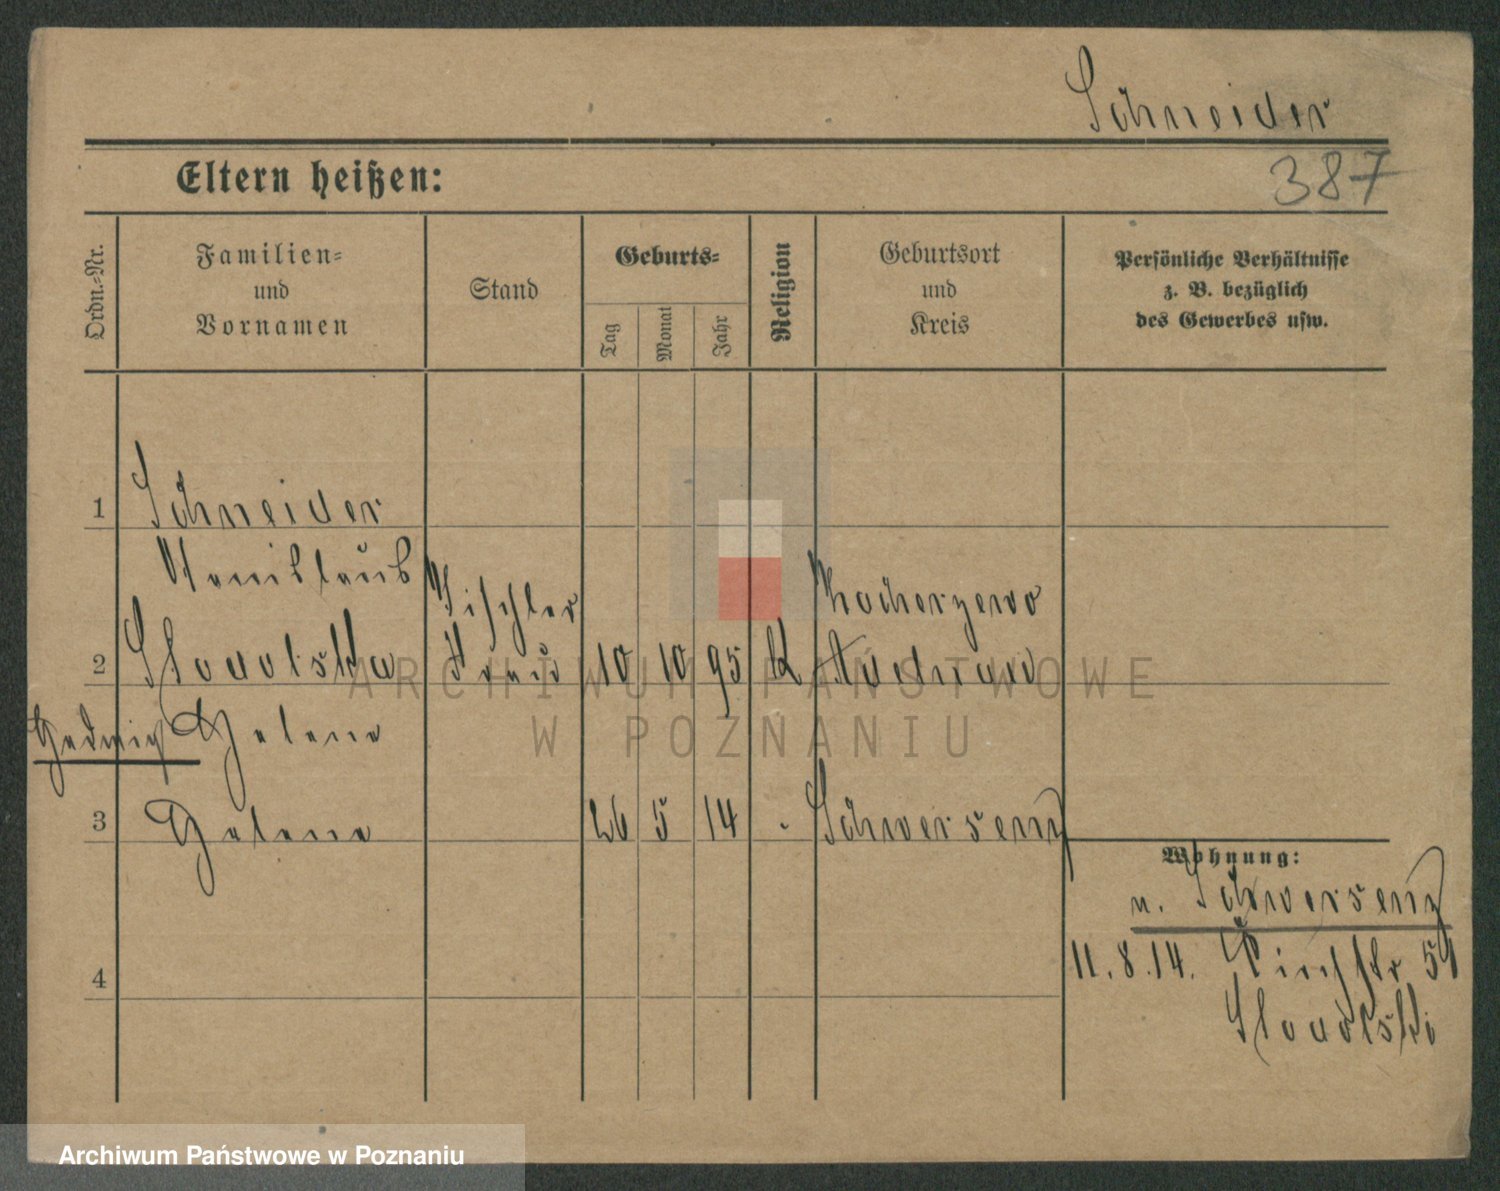 Schneider
Eltern heißen:
387
Ordn.-Nr.
Familien-
und
Vornamen
Stand
Geburts-
Tag
Monat
Jahr
Religion
Geburtsort
und
Kreis
Persönliche Verhältnisse
z. B. bezüglich
des Gewerbes usw.
1 Schneider
Stanislaus
Tischler
2
Frau 10 10 95 K
Hedwig Helene
3 Helene 26 5 14 Schwersenz
Wohnung:
n. Schwersenz
11.8.14.
4
ARCHIWUM PAŃSTWOWE
W POZNANIU
Archiwum Państwowe w Poznaniu